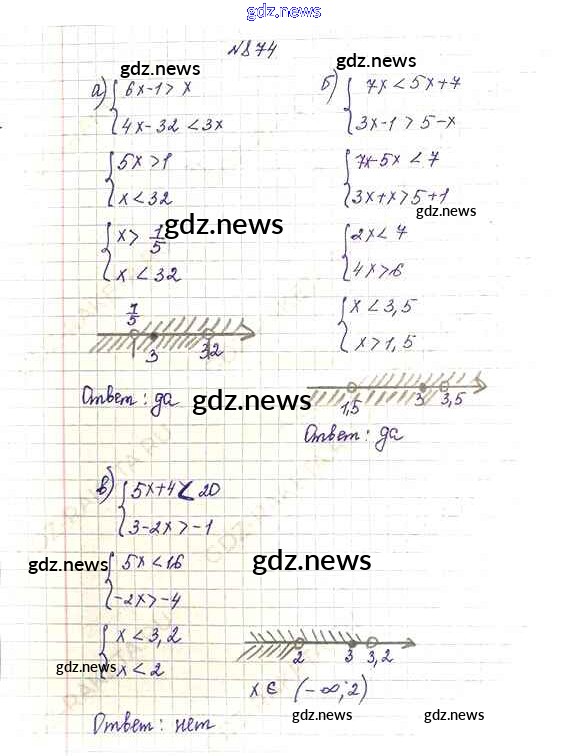 gdz.news
№874
gdz.news
а) { 6x-1 > x
4x-32 < 3x
{ 5x > 1
x < 32
{ x > 1/5
x < 32
gdz.news
1/5 3 32
Ответ: да
gdz.news
б) { 7x < 5x+7
3x-1 > 5-x
{ 7x-5x < 7
3x+x > 5+1
gdz.news
{ 2x < 7
4x > 6
{ x < 3,5
x > 1,5
1,5 3 3,5
Ответ: да
в) { 5x+4 < 20
3-2x > -1
gdz.news
{ 5x < 16
-2x > -4
gdz.news
{ x < 3,2
x < 2
gdz.news
2 3 3,2
x ∈ (-∞; 2)
gdz.news
gdz.news
Ответ: нет